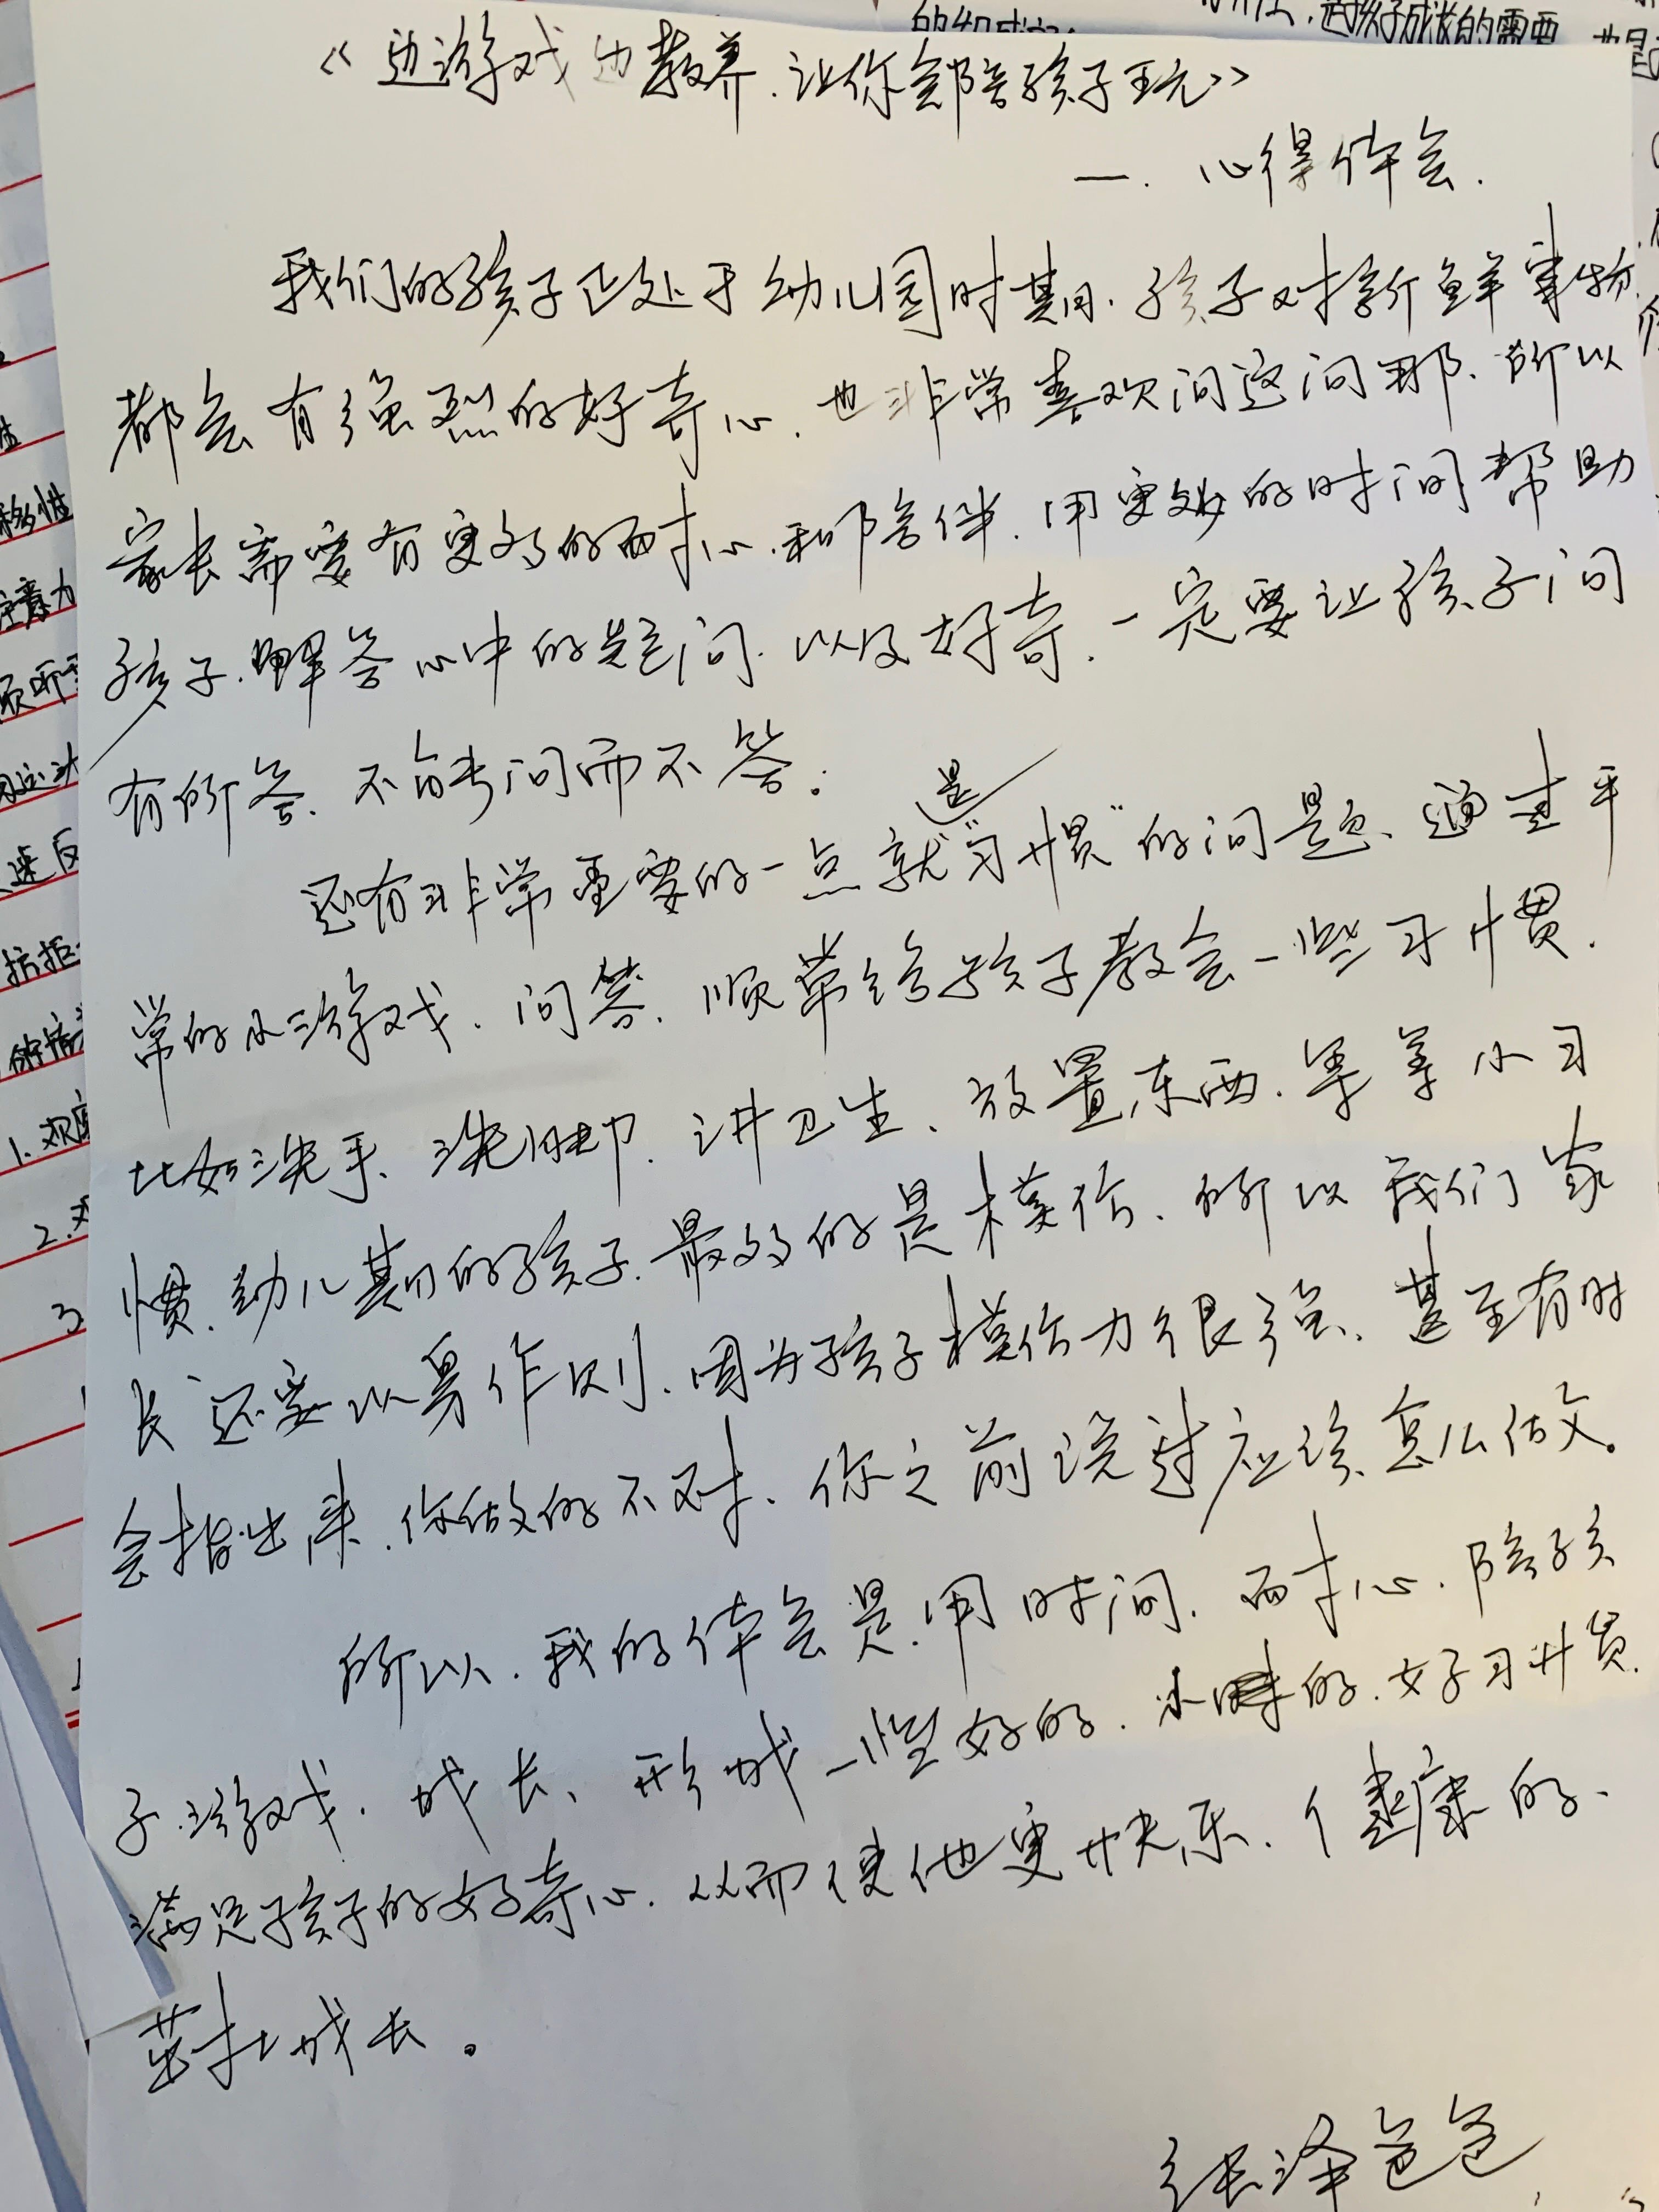 《边游戏边教养.让你会陪孩子玩》
一. 心得体会.
我们的孩子正处于幼儿园时期.孩子对新鲜事物.
都会有强烈的好奇心.也非常喜欢问这问那.所以
家长需要有更多的耐心.和陪伴.用更多的时间帮助
孩子.解答心中的疑问.以及好奇.一定要让孩子问
有所答、不能问而不答.
还有非常重要的一点就是"习惯"的问题、通过平
常的小游戏.问答.顺带给孩子教会一些习惯.
比如洗手、洗脚.讲卫生、放置东西.等等小习
惯.幼儿期的孩子.最多的是模仿.所以我们家
长还要以身作则.因为孩子模仿力很强、甚至有时
会指出来.你做的不对、你之前说过应该怎么做。
所以.我的体会是.用时间.耐心.陪孩
子.游戏.成长、形成一些好的.小的.好习惯.
满足孩子的好奇心.从而使他更快乐.健康的、
茁壮成长。
张泽爸爸
的组成部
是孩子成长的需要
移性
注意力
速反
抗拒
1.观
2.
3